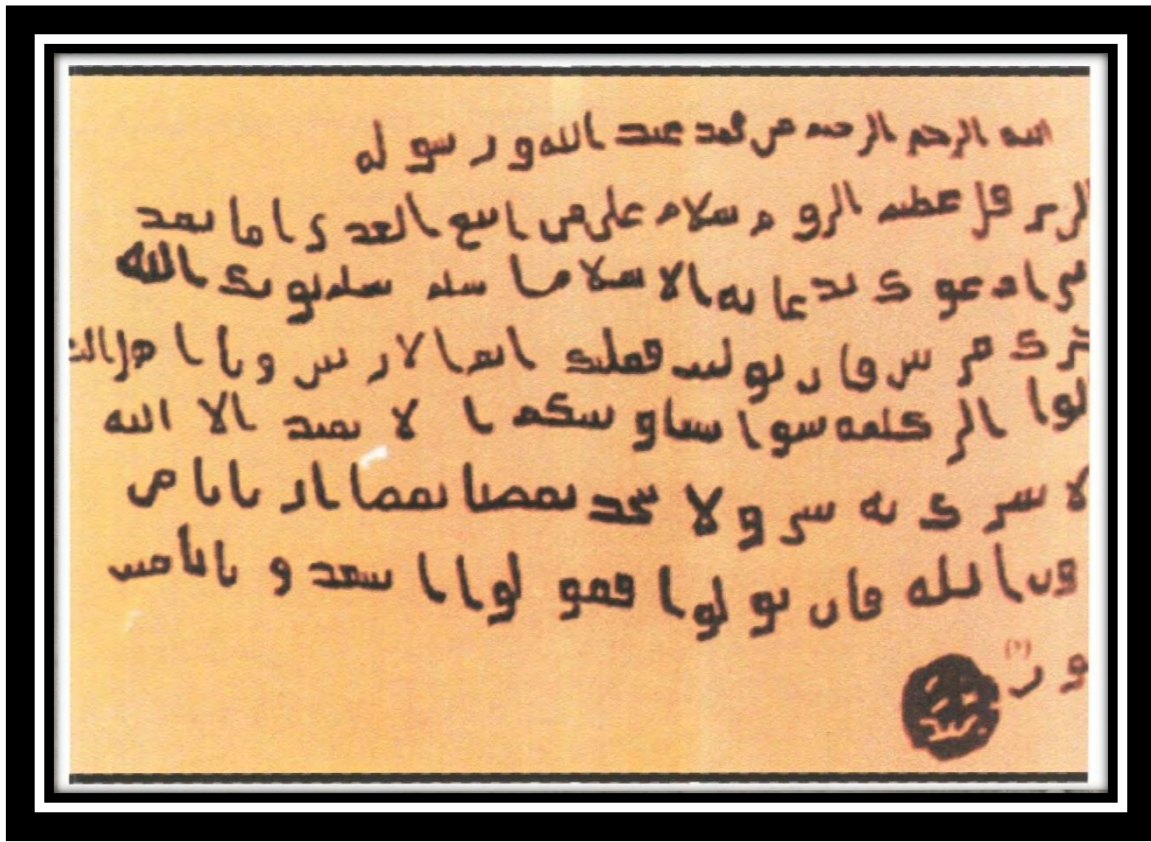 الله الرحمن الرحيم من محمد عبد الله و رسوله
الى هرقل عظيم الروم سلام على من اتبع الهدى اما بعد
فانى ادعوك بدعايه الاسلام اسلم تسلم يوتك الله
جرك مرتين فان توليت فعليك اثم الاريسين و يا اهل الكت
لوا الى كلمه سوا بيننا و بينكم ا لا نعبد الا الله
لا نشرك به شى و لا يتخذ بعضنا بعضا اربابا من
دون الله فان تولوا فقولوا اشهدوا بانا مسلم
ون (٢)